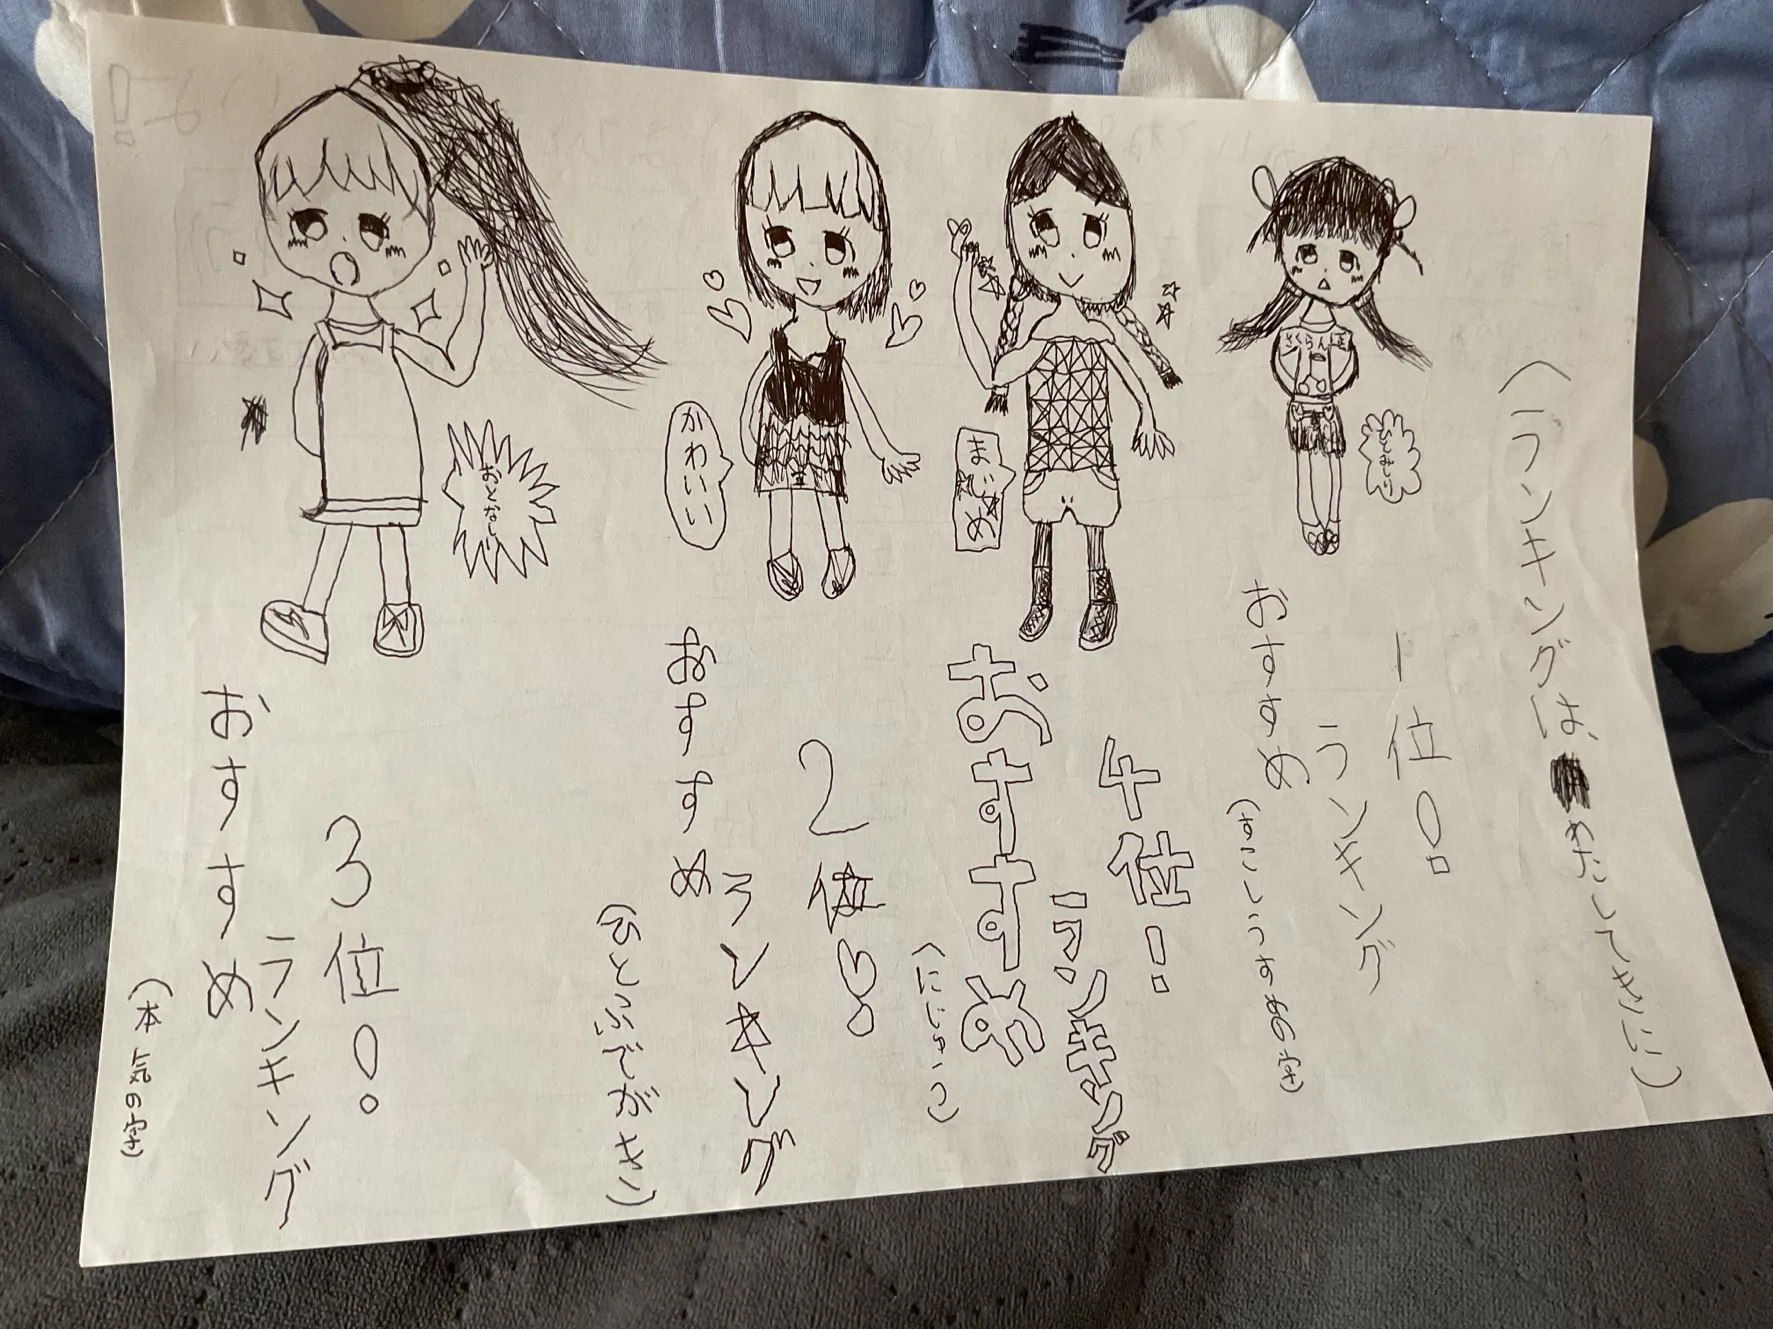 (ランキングは、わたしてきに)
1位!
ランキング
おすすめ
(すこしうすめの字)
4位!
ランキング
おすすめ
(にじゅう)
2位!
ランキング
おすすめ
(ひとふでがき)
3位!
ランキング
おすすめ
(本気の字)
かわいい
おとなしい